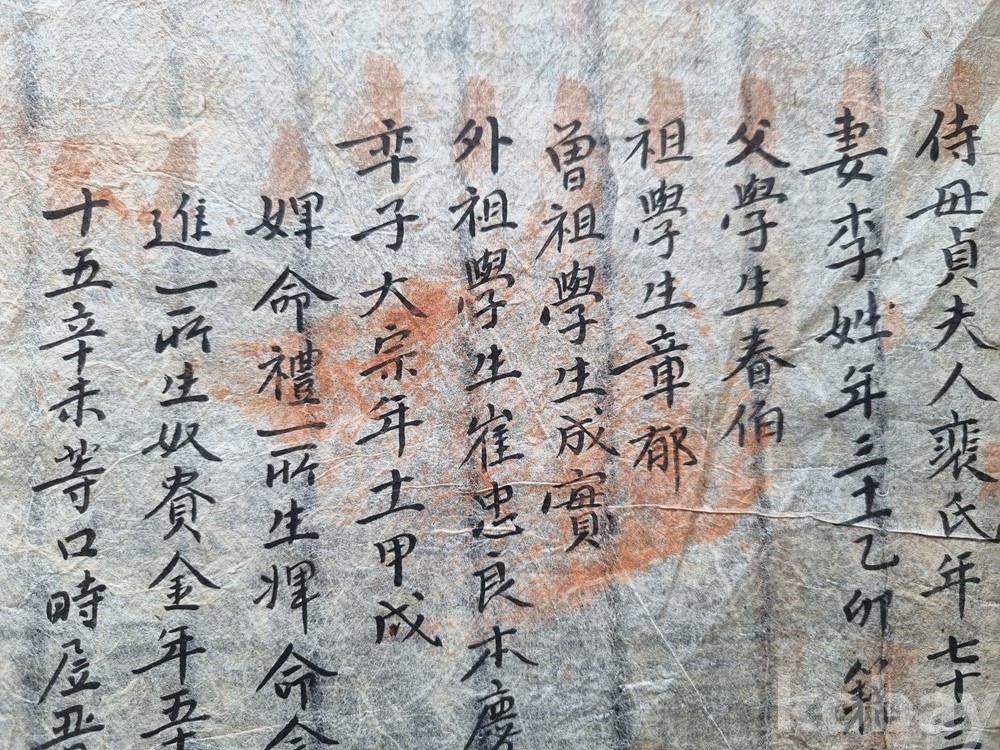 侍母貞夫人裴氏年七十二
妻李姓年三十乙卯籍
父學生春伯
祖學生章郁
曾祖學生成實
外祖學生崔忠良本慶
率子大宗年土甲戌
婢命禮一所生婢命今
進一所生奴貴金年五十
十五辛未等口時居丑
kobay